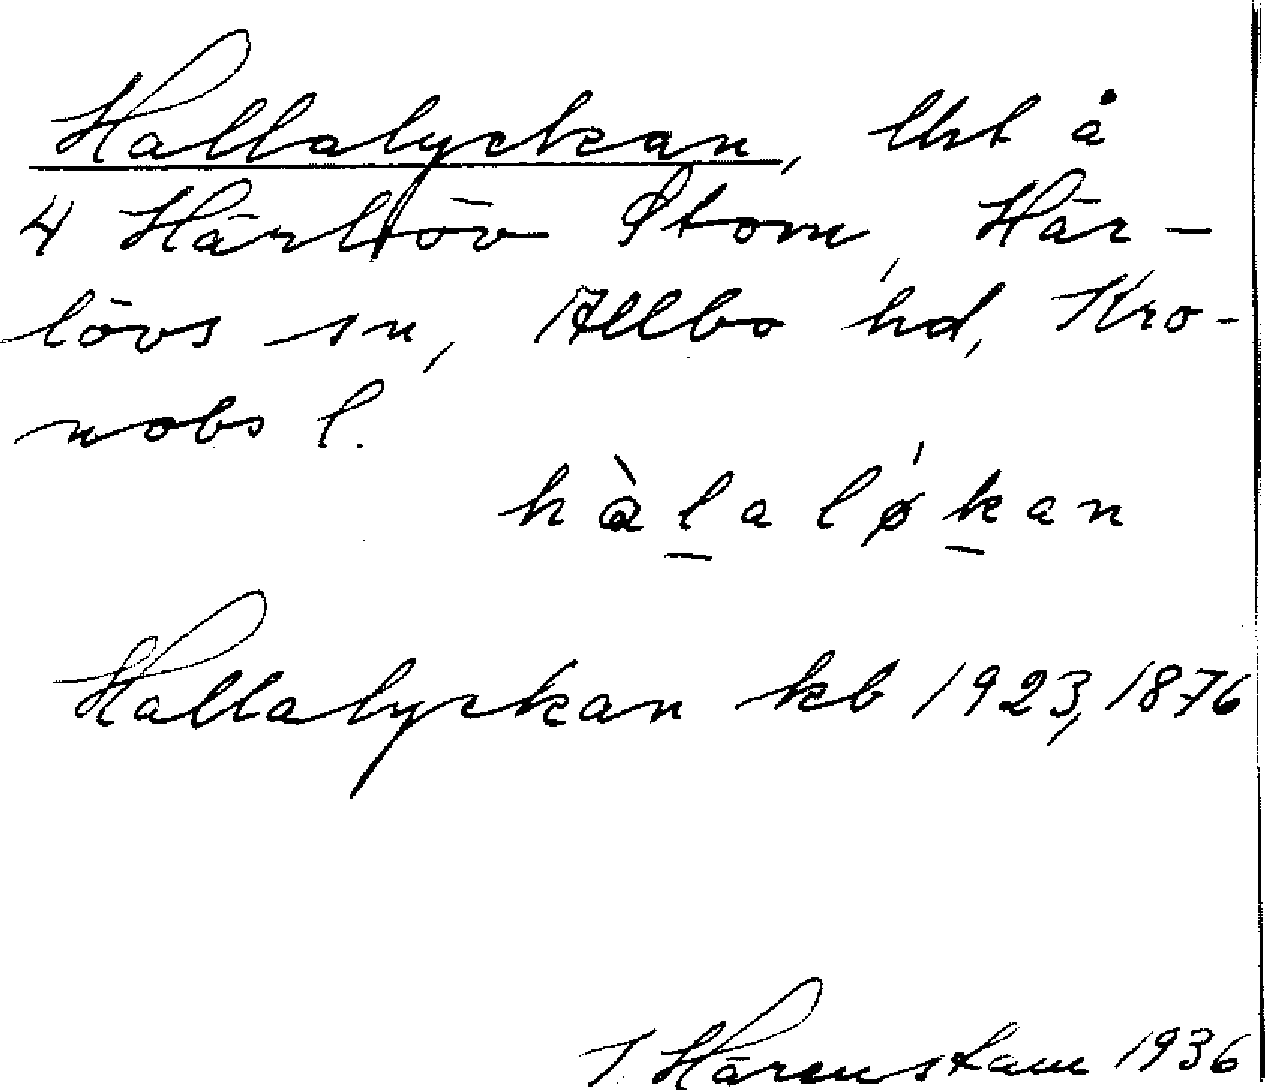 Hallalyckan, lht å
4 Härlöv Stom, Här-
lövs sn, Allbo hd, Kro-
nobs l.
hàlalǿkan
Hallalyckan kb 1923, 1876
J Härenstam 1936